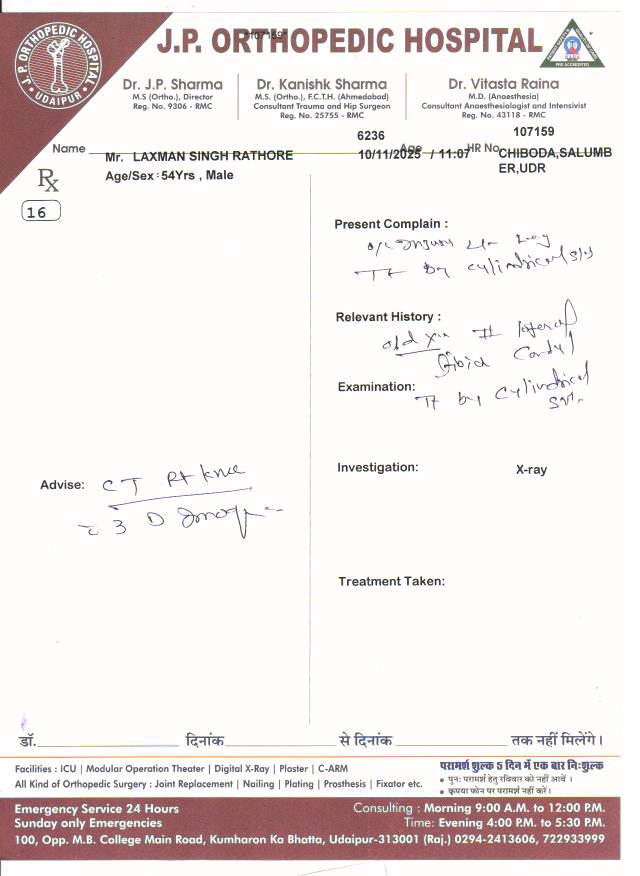 J.P. ORTHOPEDIC HOSPITAL
*107159*
J.P. ORTHOPEDIC HOSPITAL
UDAIPUR
PRE ACCREDITED
Dr. J.P. Sharma
M.S (Ortho.), Director
Reg. No. 9306 - RMC
Dr. Kanishk Sharma
M.S. (Ortho.), F.C.T.H. (Ahmedabad)
Consultant Trauma and Hip Surgeon
Reg. No. 25755 - RMC
Dr. Vitasta Raina
M.D. (Anaesthesia)
Consultant Anaesthesiologist and Intensivist
Reg. No. 43118 - RMC
6236
107159
Name Mr. LAXMAN SINGH RATHORE
Age
10/11/2025 / 11:07
HR No
CHIBODA,SALUMB
ER,UDR
Rx
Age/Sex : 54Yrs , Male
16
Present Complain :
by cylindrical
Relevant History :
old
Tibia
Examination:
by cylindrical
Investigation: X-ray
Advise: CT Rt knee
3 D
Treatment Taken:
डॉ. दिनांक से दिनांक तक नहीं मिलेंगे।
Facilities : ICU | Modular Operation Theater | Digital X-Ray | Plaster | C-ARM
All Kind of Orthopedic Surgery : Joint Replacement | Nailing | Plating | Prosthesis | Fixator etc.
परामर्श शुल्क 5 दिन में एक बार निःशुल्क
• पुनः परामर्श हेतु रविवार को नहीं आवें ।
• कृपया फोन पर परामर्श नहीं करें।
Emergency Service 24 Hours
Sunday only Emergencies
Consulting : Morning 9:00 A.M. to 12:00 P.M.
Time: Evening 4:00 P.M. to 5:30 P.M.
100, Opp. M.B. College Main Road, Kumharon Ka Bhatta, Udaipur-313001 (Raj.) 0294-2413606, 722933999